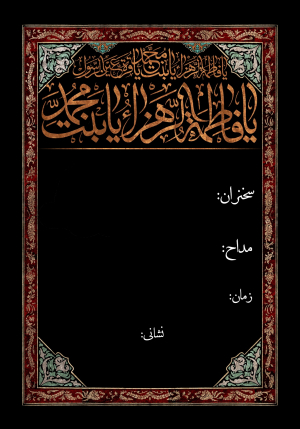 یا فاطمة الزهراء یا بنت محمد یا قرة عین الرسول
یا فاطمة الزهراء یا بنت محمد
سخنران:
مداح:
زمان:
نشانی: